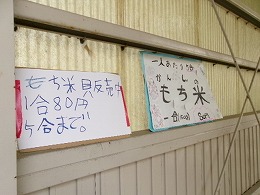 もち米販売中
1合80円
5合まで。
一人あたり5合
かんしゅ
もち米
一合(120g) 80円